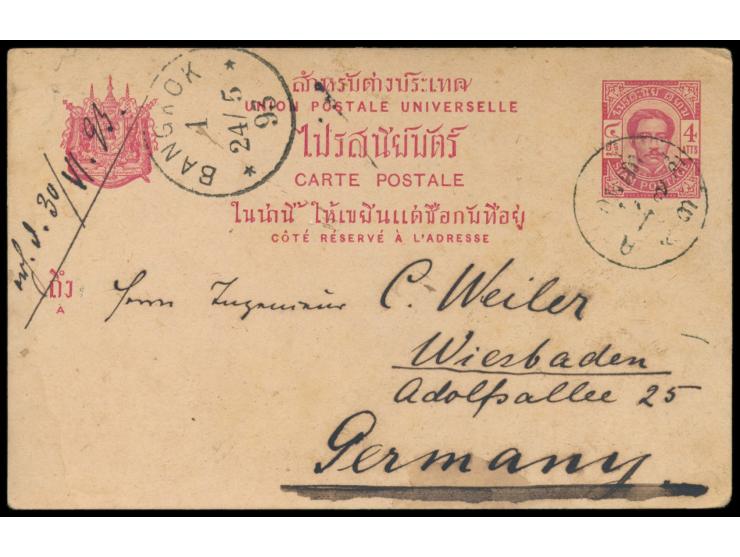 สำหรับต่างประเทศ
UNION POSTALE UNIVERSELLE
ไปรสนียบัตร์
CARTE POSTALE
ในน่านี้ ให้เขยีนแต่ชื่อกับที่อยู่
CÔTÉ RÉSERVÉ À L'ADRESSE
BANGKOK
1
24/5
93
4
ATTS
30/VI. 93.
ถึง
A
Herrn Ingenieur C. Weiler
Wiesbaden
Adolfsallee 25
Germany